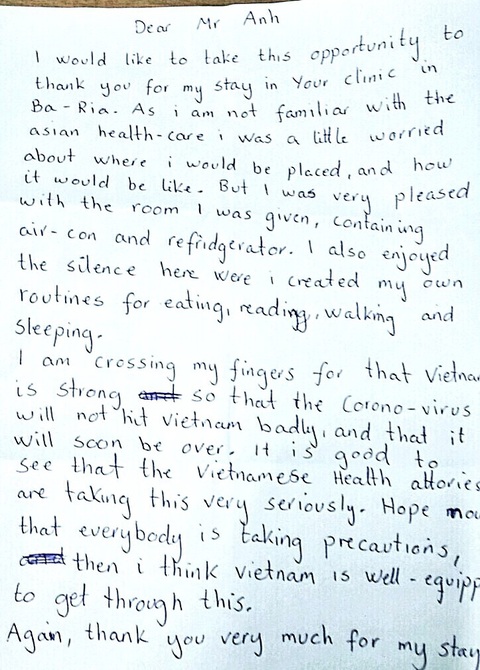 Dear Mr Anh
I would like to take this opportunity to
thank you for my stay in Your clinic in
Ba-Ria. As i am not familiar with the
asian health-care i was a little worried
about where i would be placed, and how
it would be like. But I was very pleased
with the room I was given, containing
air-con and refridgerator. I also enjoyed
the silence here were i created my own
routines for eating, reading, walking and
Sleeping.
I am crossing my fingers for that Vietnam
is strong so that the Corono-virus
will not hit Vietnam badly, and that it
will soon be over. It is good to
see that the Vietnamese Health attories
are taking this very seriously. Hope
that everybody is taking precautions,
then i think Vietnam is well-equipp
to get through this.
Again, thank you very much for my stay